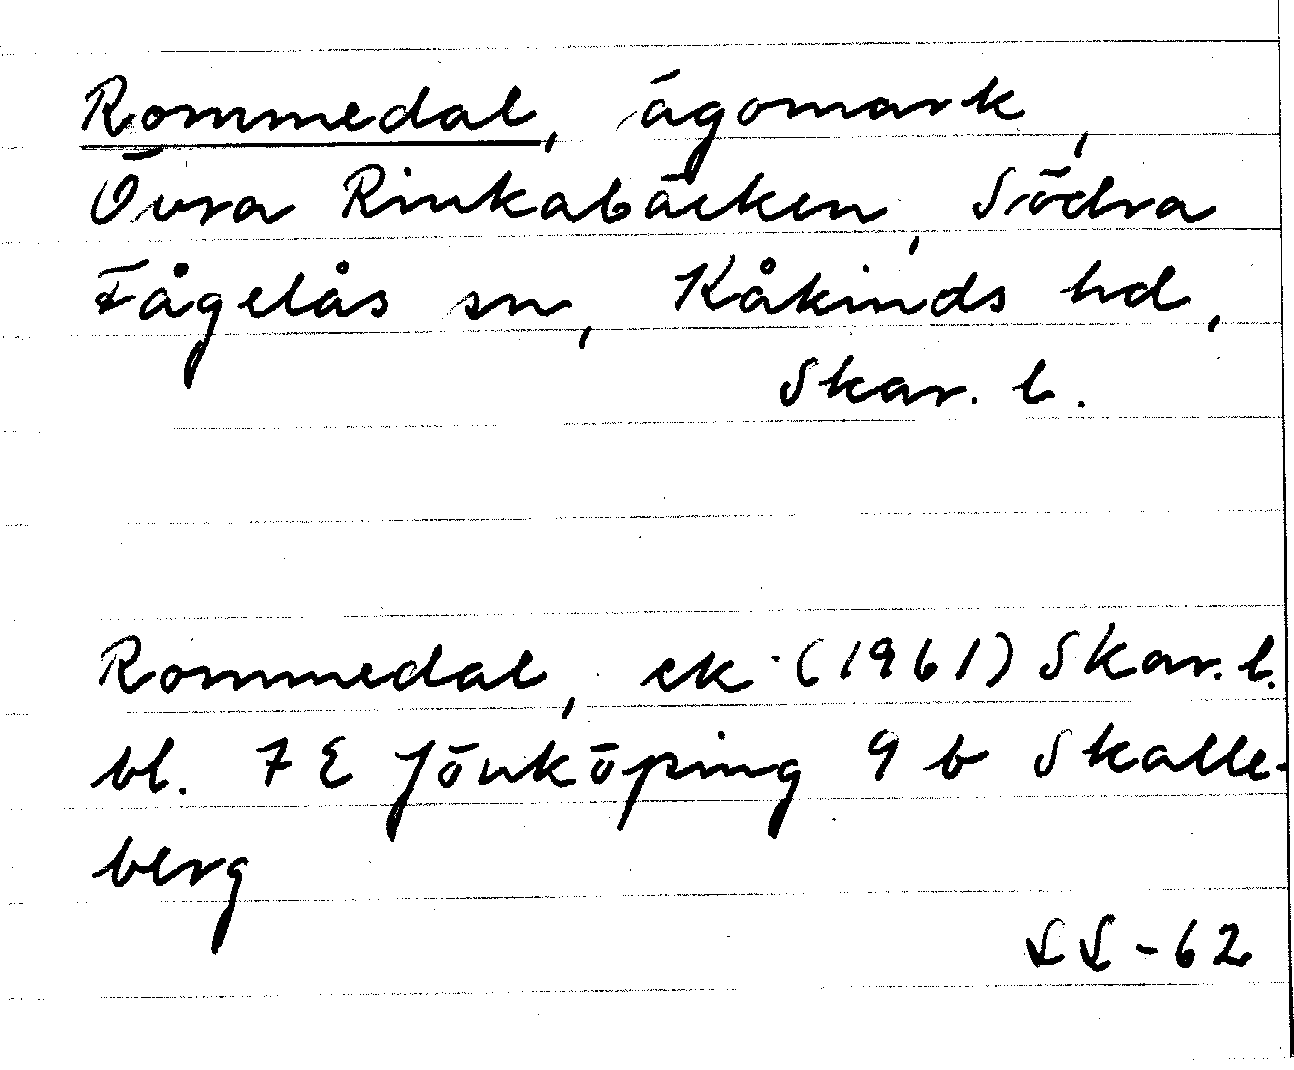 Rommedal, ägomark,
Övra Rinkabäcken, Södra
Fågelås sn, Kåkinds hd,
Skar. l.
Rommedal, ek (1961) Skar. l.
bl. 7 E Jönköping 9 b Skalle-
berg
LL-62